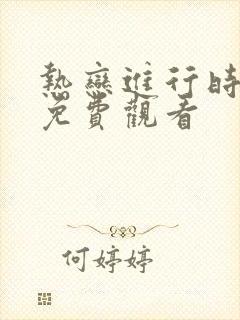 熱戀進行時
免費觀看
何婷婷